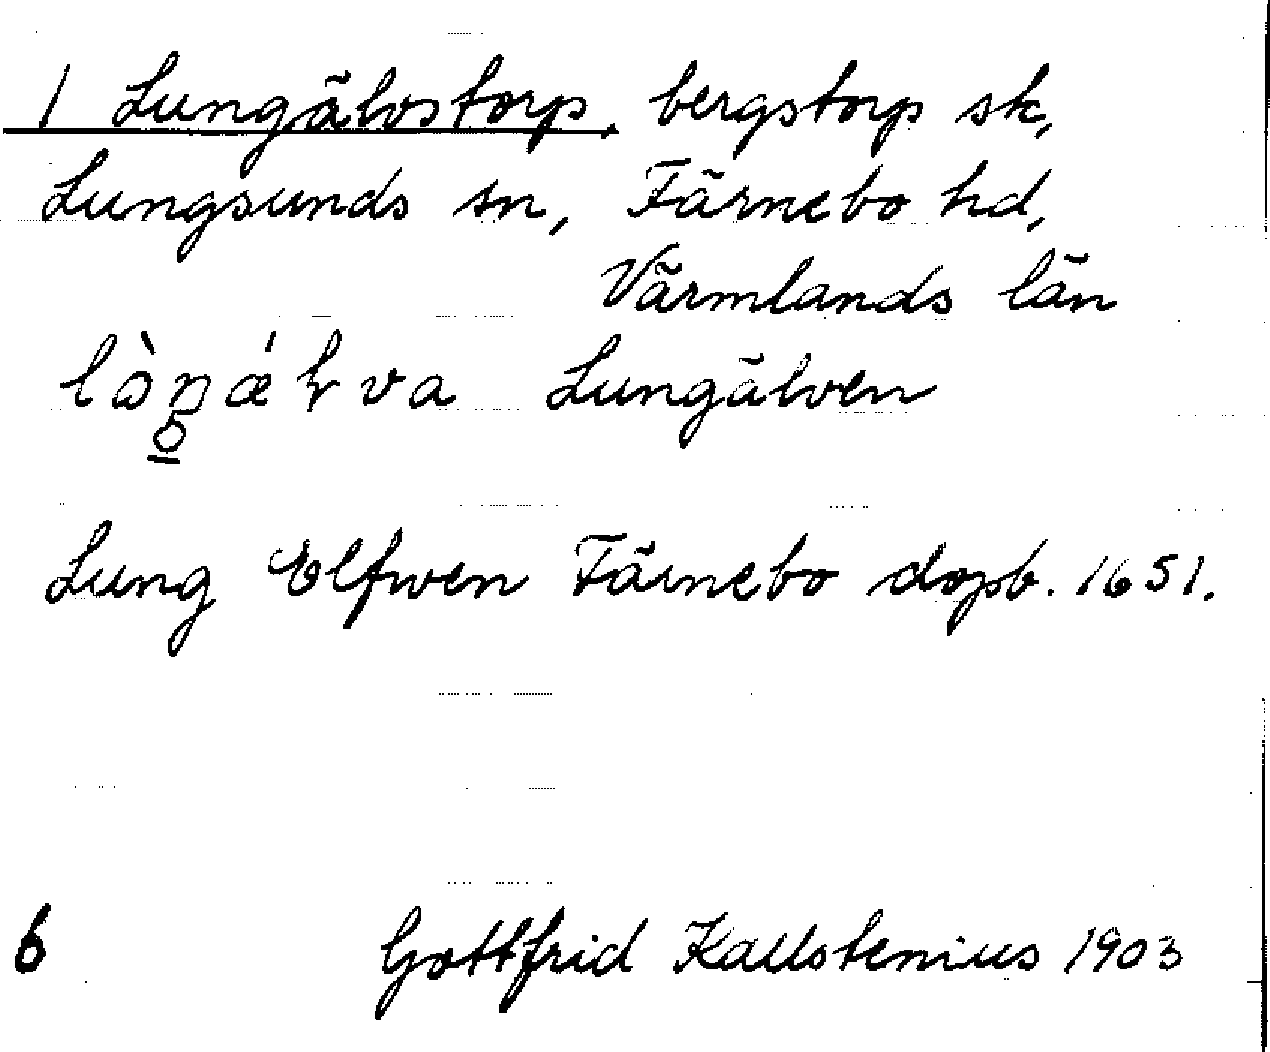 1 Lungälvstorp, bergstorp sk,
Lungsunds sn, Färnebo hd,
Värmlands län
lòŋǽɽva Lungälven
o
Lung Elfwen Färnebo dopb. 1651.
6 Gottfrid Kallstenius 1903